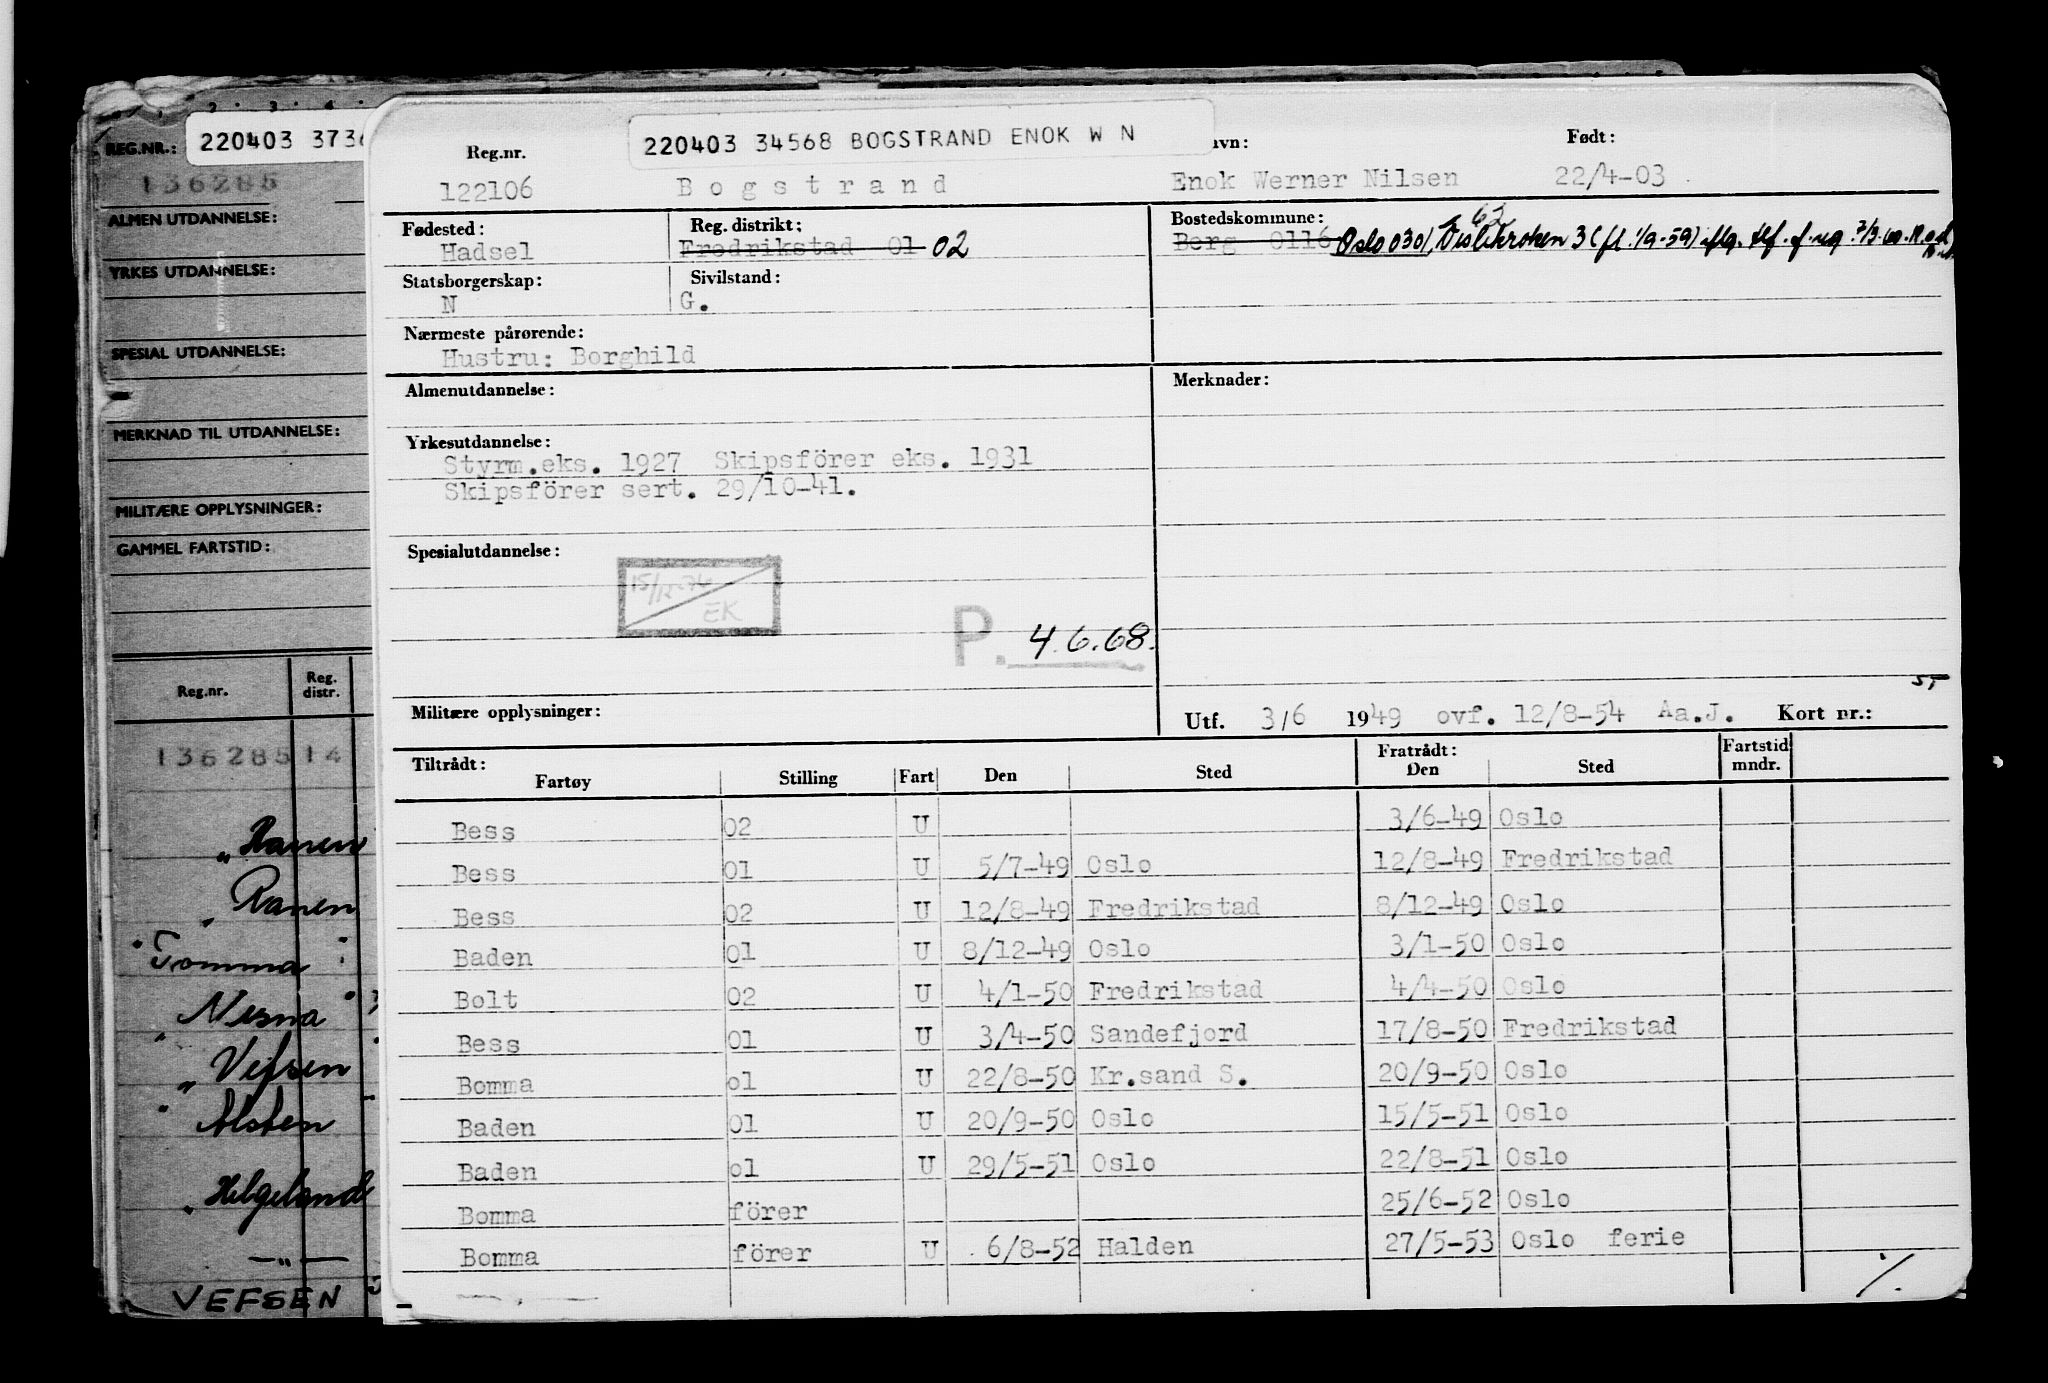 2 . 3 . 4 .
REG.NR.:
220403 3736
136285
ALMEN UTDANNELSE:
YRKES UTDANNELSE:
SPESIAL UTDANNELSE:
MERKNAD TIL UTDANNELSE:
MILITÆRE OPPLYSNINGER:
GAMMEL FARTSTID:
Reg.nr. Reg. distr.
136285 14
"Ranen
"Ranen
"Tomma
"Nesna"
"Vefsen
"Alsten
"Helgeland
— " —
VEFSEN
220403 34568 BOGSTRAND ENOK W N
Reg.nr. avn: Født:
122106 Bogstrand Enok Werner Nilsen 22/4-03
Fødested: Reg. distrikt: Bostedskommune:
Hadsel Fredrikstad 01 02 Berg 0116 Oslo 0301, 3 (fl. 1/9-59) iflg. tlf. f.
Statsborgerskap: Sivilstand:
N G.
Nærmeste pårørende:
Hustru: Borghild
Almenutdannelse: Merknader:
Yrkesutdannelse:
Styrm.eks. 1927 Skipsförer eks. 1931
Skipsförer sert. 29/10-41.
Spesialutdannelse:
15/12-74
EK
P. 4.6.68.
Militære opplysninger: Utf. 3/6 1949 ovf. 12/8-54 Aa.J. Kort nr.:
Tiltrådt: Fratrådt: Fartstid mndr.
Fartøy Stilling Fart Den Sted Den Sted
Bess 02 U 3/6-49 Oslo
Bess 01 U 5/7-49 Oslo 12/8-49 Fredrikstad
Bess 02 U 12/8-49 Fredrikstad 8/12-49 Oslo
Baden 01 U 8/12-49 Oslo 3/1-50 Oslo
Bolt 02 U 4/1-50 Fredrikstad 4/4-50 Oslo
Bess 01 U 3/4-50 Sandefjord 17/8-50 Fredrikstad
Bomma ol U 22/8-50 Kr.sand S. 20/9-50 Oslo
Baden 01 U 20/9-50 Oslo 15/5-51 Oslo
Baden ol U 29/5-51 Oslo 22/8-51 Oslo
Bomma förer 25/6-52 Oslo
Bomma förer U 6/8-52 Halden 27/5-53 Oslo ferie